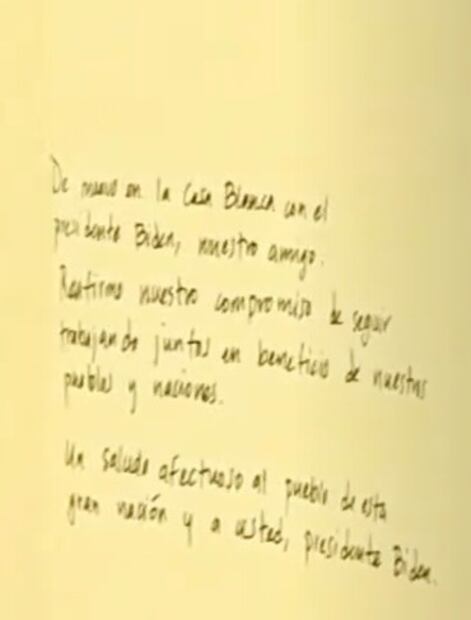 De nuevo en la Casa Blanca con el
presidente Biden, nuestro amigo.
Reafirmo nuestro compromiso de seguir
trabajando juntos en beneficio de nuestros
pueblos y naciones.
Un saludo afectuoso al pueblo de esta
gran nación y a usted, presidente Biden.